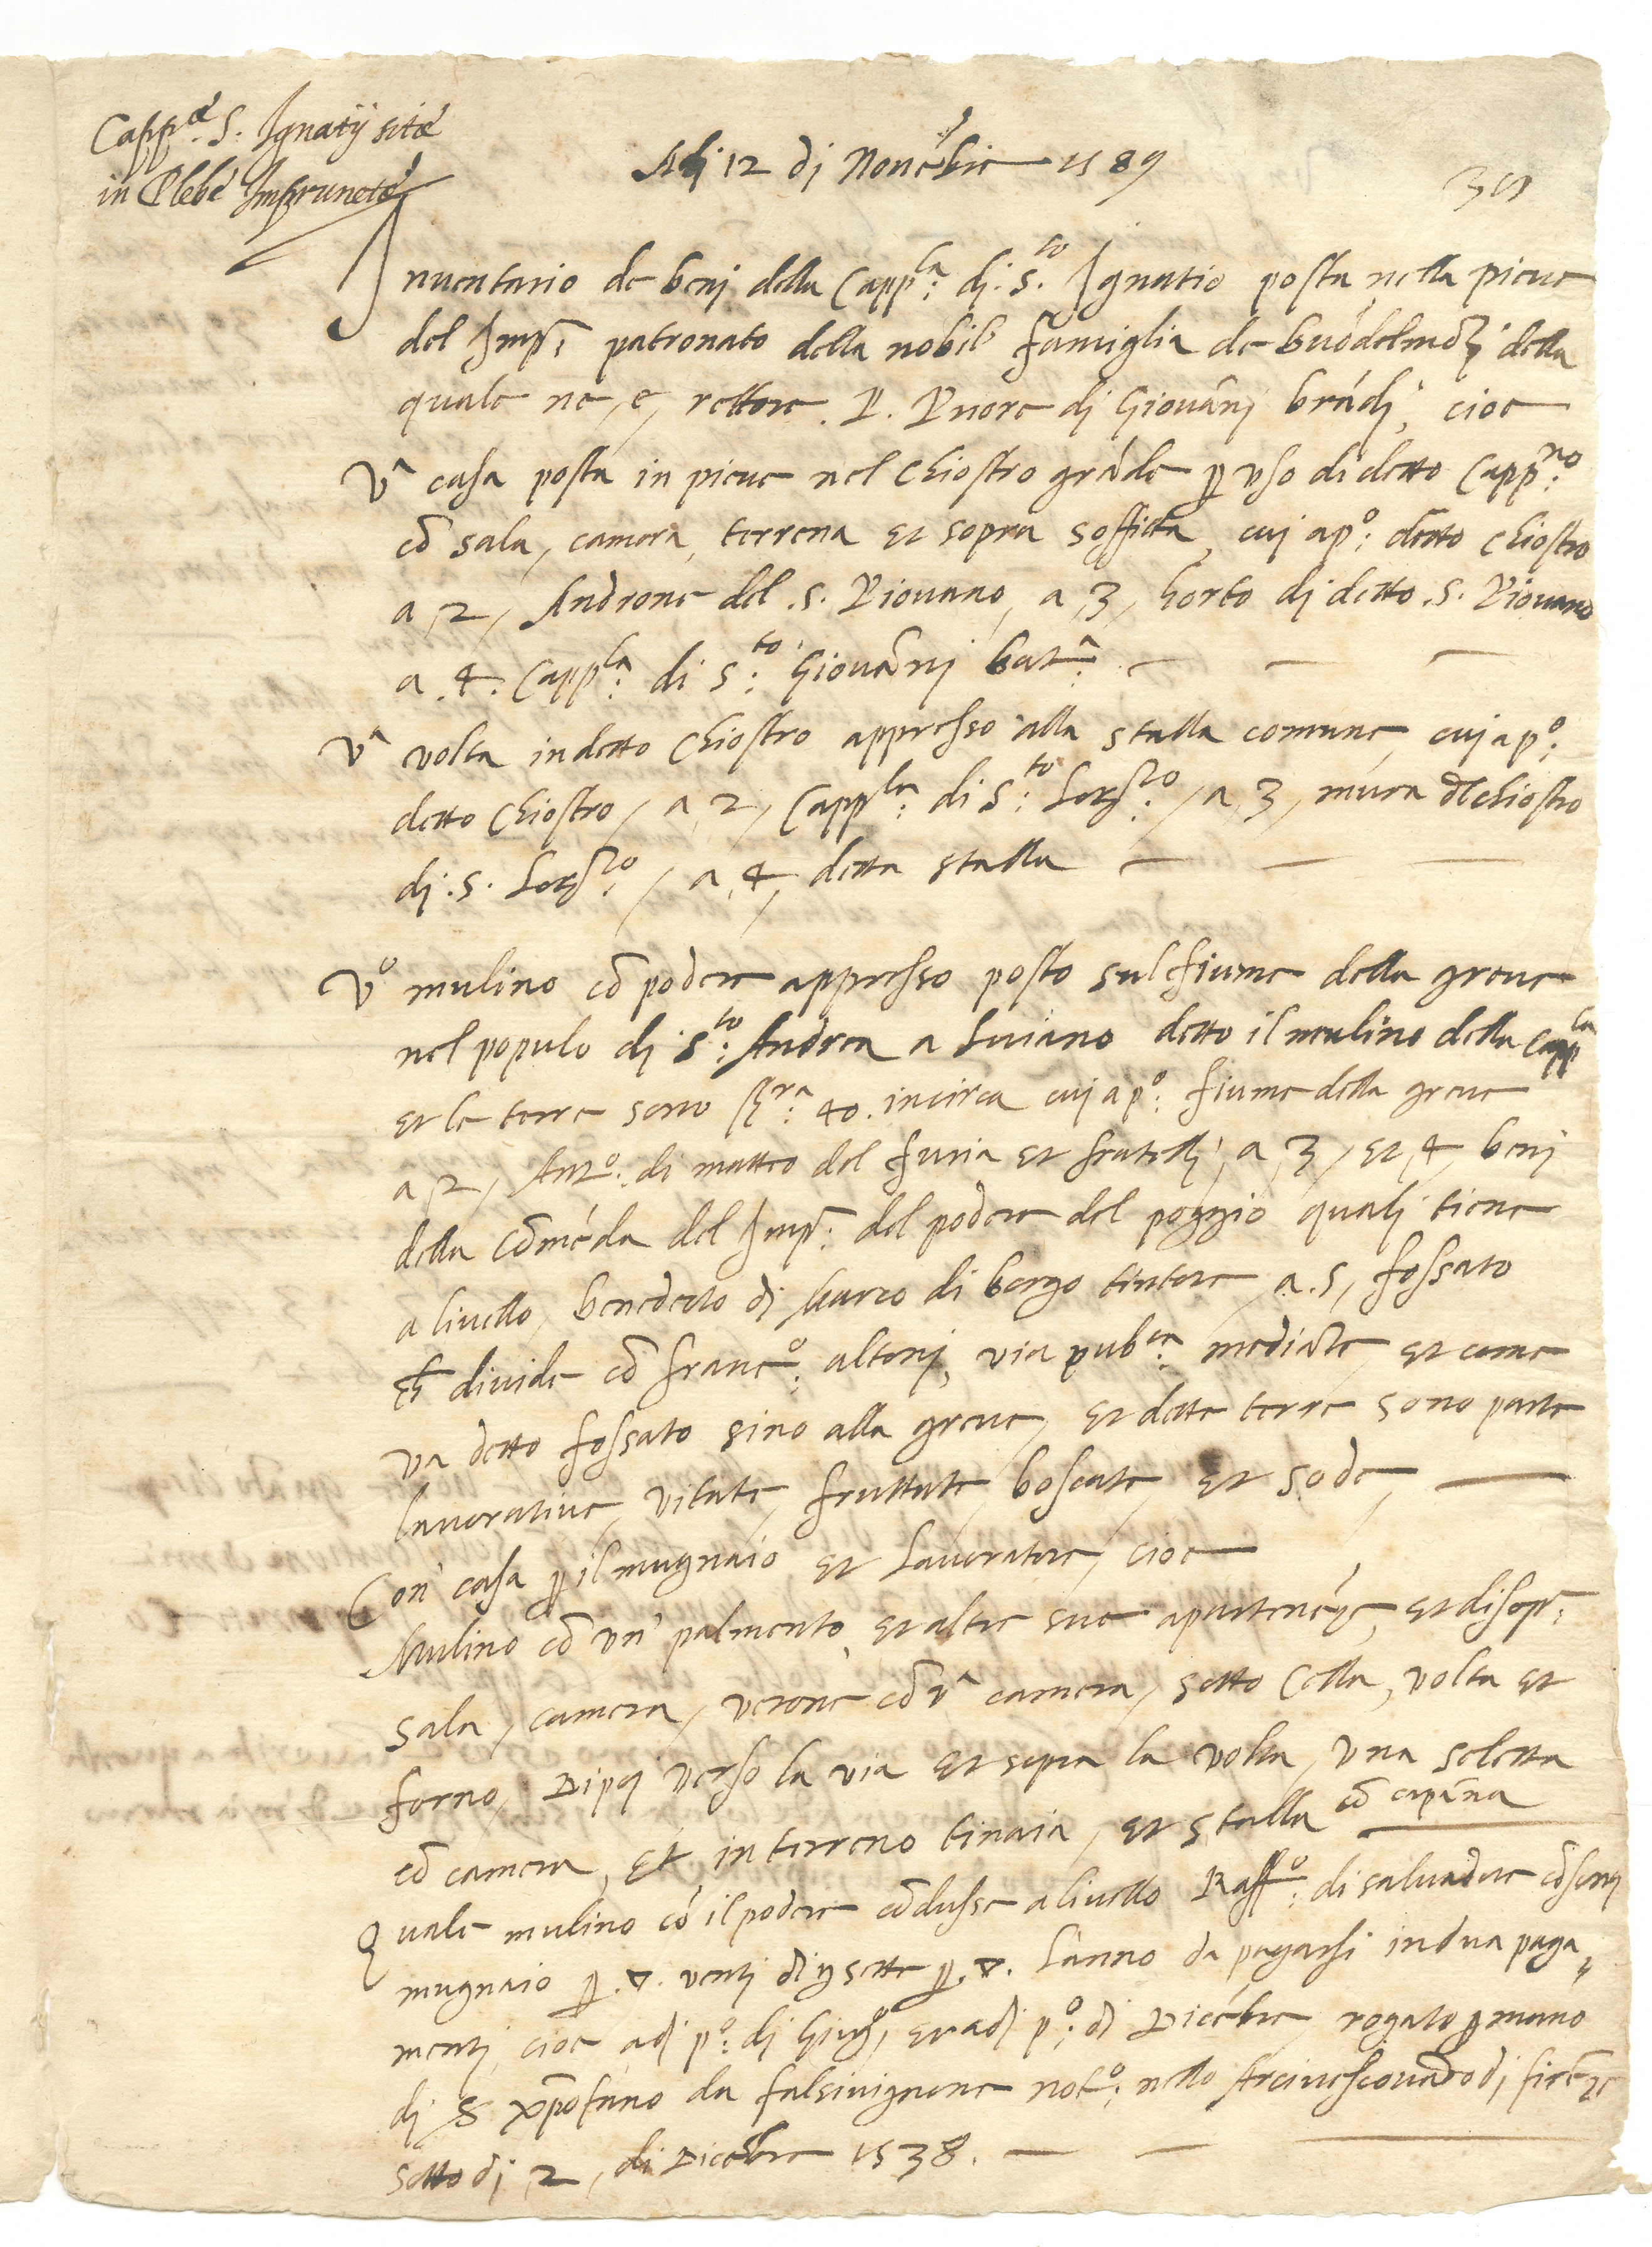 Capp.ᵃᵉ S. Ignatij sitae
in Plebe Imprunetae
Adj 12 dj Noue͂bre 1589
Inuentario de benj della Capp:ˡᵃ dj S.ᵗᵒ Ignatio posta nella pieue
del Imp:ᵗᵃ patronato della nobil famiglia de buo͂delmo͂ti della
quale ne, e, rettore. P. Priore dj Giova͂nj bra͂dj, cioe
Vᵃ casa posta in pieue nel Chiostro gra͂de p uso di detto Capp:ⁿᵒ
co͂ sala, camera, terrena et sopra soffitta, cuj ap:º detto Chiostro
a, 2, Androne del .S. Piouano, a, 3, horto dj detto .S. Piouano
a .4. Capp:ˡᵃ di S:ᵗᵒ Gioua͂nnj bat:ᵃ
Vᵃ volta in detto Chiostro appresso alla stalla comune, cuj ap:º
detto Chiostro, a, 2, Capp:ˡᵃ di S:ᵗᵒ Lor:ᶻᵒ, a, 3, mura del Chiostro
dj .S. Lor:ᶻᵒ, a, 4, detta stalla
Vº mulino co͂ podere appresso posto sul fiume della greue
nel populo dj S:ᵗᵒ Andrea a Luiano detto il mulino della Cappˡᵃ
et le terre sono st:ʳᵃ 40. incirca cuj ap:º fiume della greue
a, 2, Ant:º di matteo del furia et fratellj, a, 3, et, 4, benj
della Co͂me͂da del Imp:ᵗᵃ del podere del poggio qualj tiene
a liuello, benedetto dj Marco di borgo tintore, a .5, fossato
che divide co͂ Franc:º altonj, via pub:ᶜᵃ media͂te, et come
va detto fossato sino alla greue, et dette terre sono parte
lauoratiue, vitate, fruttate, boscate, et sode,
Con casa p il mugnaio et Lauoratore, cioe
Mulino co͂ un' palmento, et altre sue apartene͂ze, et di sopr:ᵃ
sala, camera, verone co͂ vᵃ camera, sotto Cella, volta et
forno, Dipoj verso la via et sopra la volta, una saletta
co͂ camera, et in terreno tinaia, et stalla co͂ capa͂na
Quale mulino co͂ il podere co͂dusse a liuello Raff:º di saluadore
mugnaio p .▽. ventj p .▽. lanno da pagarsi in dua paga=
mentj, cioe adj p:º dj Giug:º, et adj p:º dj Dice͂bre, rogato p mano
dj S xpofano da falsiuignone not:º nello Arciuescouado dj fire͂ze
sotto dj, 2, di Dice͂bre 1538.